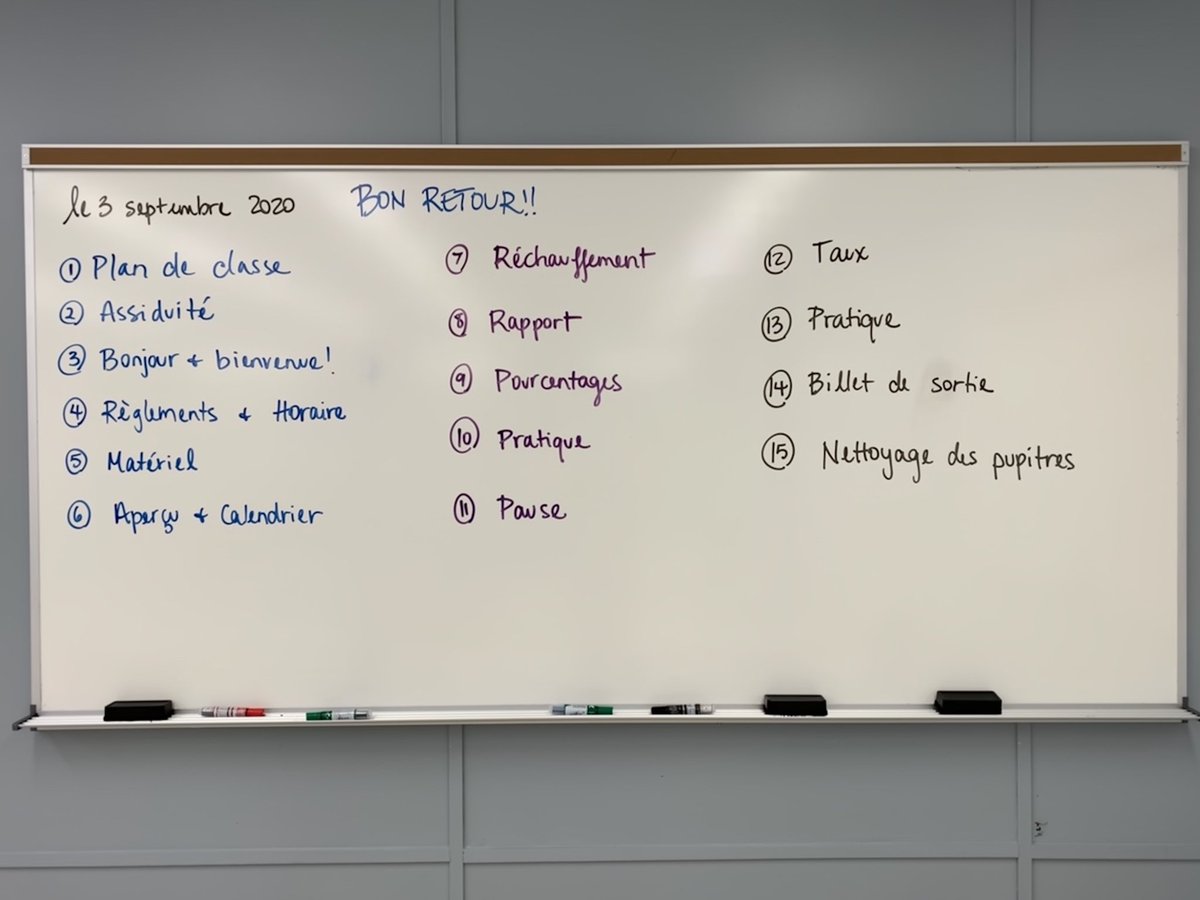 le 3 septembre 2020 BON RETOUR!!
① Plan de classe
② Assiduité
③ Bonjour + bienvenue!
④ Règlements + Horaire
⑤ Matériel
⑥ Aperçu + Calendrier
⑦ Réchauffement
⑧ Rapport
⑨ Pourcentages
⑩ Pratique
⑪ Pause
⑫ Taux
⑬ Pratique
⑭ Billet de sortie
⑮ Nettoyage des pupitres